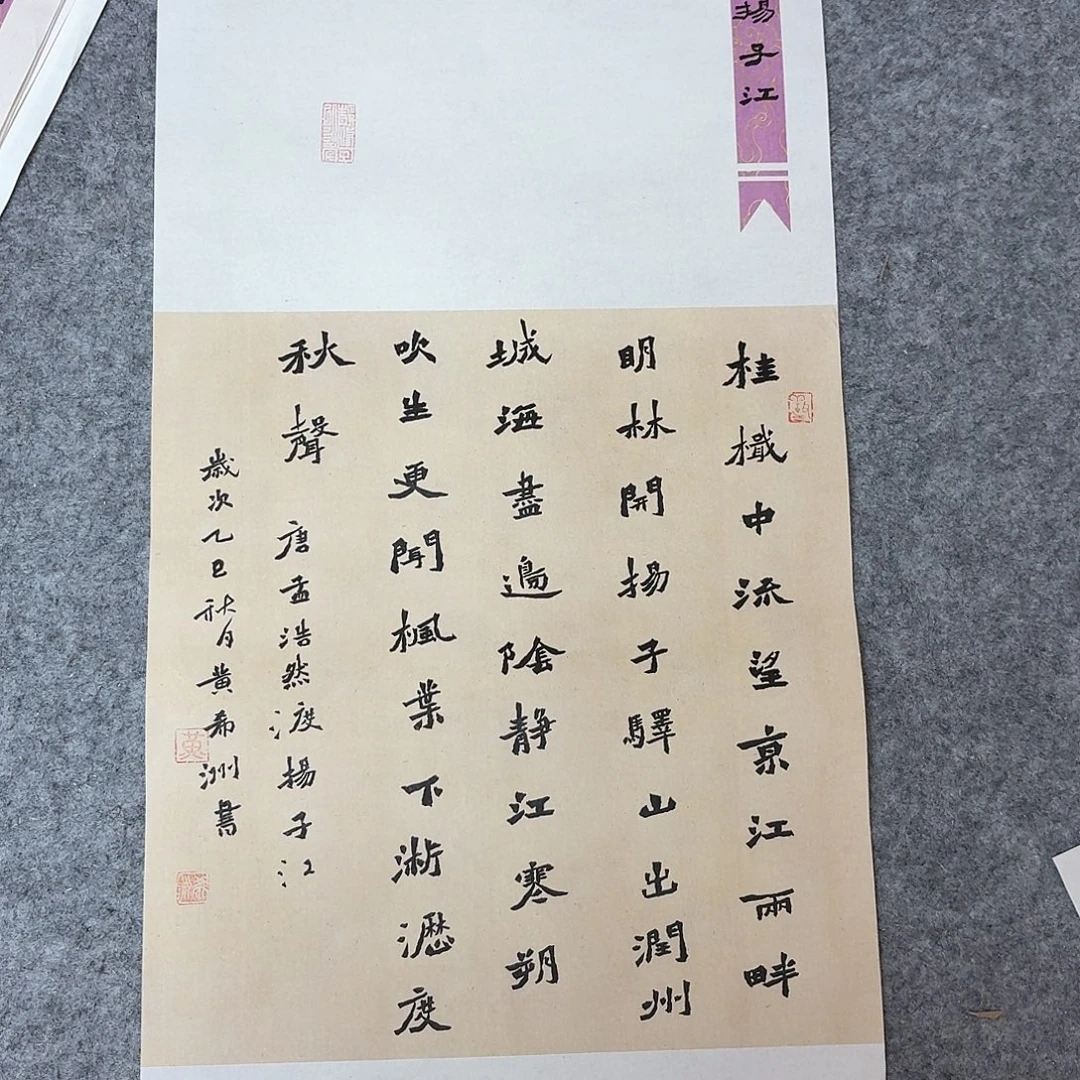 揚子江
桂檝中流望亰江兩畔
明林開揚子驛山出潤州
城海盡邉陰靜江寒朔
吹生更聞楓葉下淅瀝度
秋聲 唐孟浩然渡揚子江
歲次乙巳秋月黄希洲書
黄